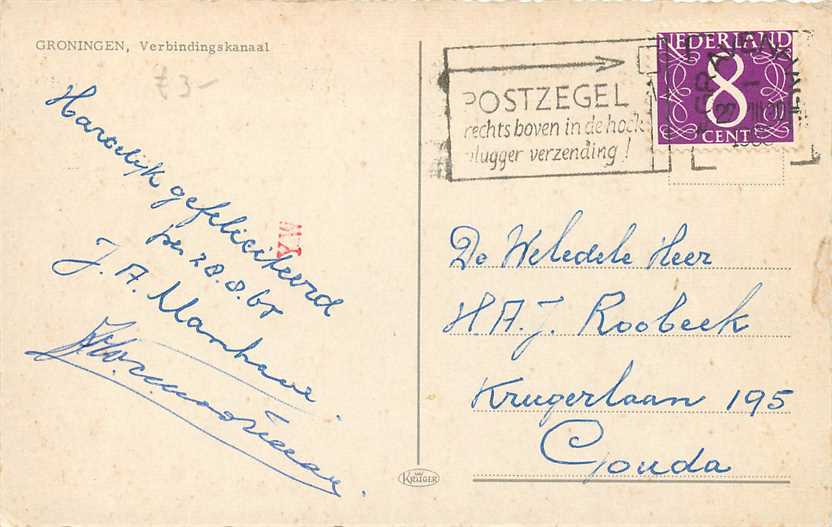 GRONINGEN, Verbindingskanaal
£3-
Hartelijk gefeliciteerd
per 28.8.65
J. A. Manhave.
MX
POSTZEGEL
rechts boven in de hoek
vlugger verzending!
NEDERLAND
8
CENT
De Weledele Heer
H.A.J. Roobeek
Krugerlaan 195
Gouda
KRUGER